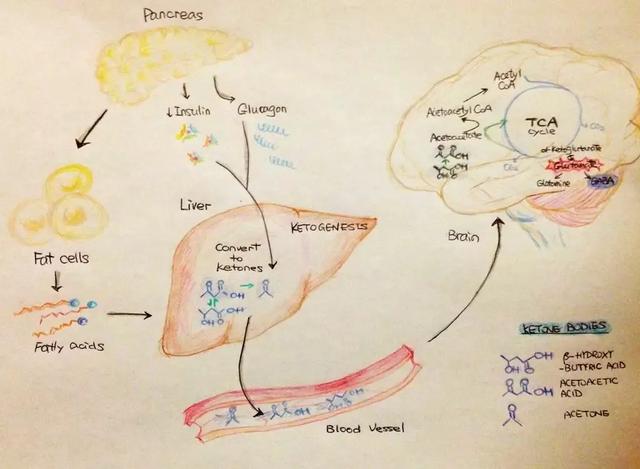 Pancreas
↓ Insulin
Glucagon
Fat cells
Fatty acids
Liver
KETOGENESIS
Convert
to
ketones
OH
OH
OH
OH
Blood Vessel
Brain
Acetyl
CoA
Acetoacetyl CoA
Acetoacetate
TCA
cycle
CO₂
CO₂
α-Ketoglutarate
Glutamate
Glutamine
GABA
KETONE BODIES
β-HYDROXY
-BUTYRIC ACID
ACETOACETIC
ACID
ACETONE